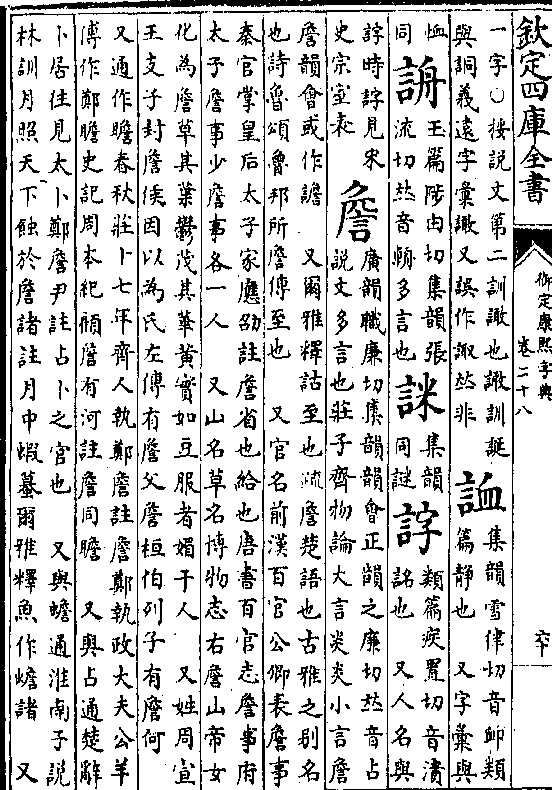 欽定四庫全書
御定康熙字典
卷二十八
六下
一字○按說文第二訓譀也譀訓誕
與詷義遠字彙譀又誤作諏𠀤非
䛎
集韻雪律切音卹類
篇靜也 又字彙與
恤
同
譸
玉篇陟由切集韻張
流切𠀤音輈多言也
詸
集韻
同謎
䛐
類篇疾置切音漬
詺也 又人名與
䛐時䛐見宋
史宗室表
詹
廣韻職廉切集韻韻會正韻之廉切𠀤音占
說文多言也莊子齊物論大言炎炎小言詹
詹韻會或作譫 又爾雅釋詁至也疏詹楚語也古雅之别名
也詩魯頌魯邦所詹傳至也 又官名前漢百官公卿表詹事
秦官掌皇后太子家應劭註詹省也給也唐書百官志詹事府
太子詹事少詹事各一人 又山名草名博物志右詹山帝女
化為詹草其葉鬱茂其華黃實如豆服者媚于人 又姓周宣
王支子封詹侯因以為氏左傳有詹父詹桓伯列子有詹何
又通作瞻春秋莊十七年齊人執鄭詹註詹鄭執政大夫公羊
傳作鄭瞻史記周本紀顧詹有河註詹同瞻 又與占通楚辭
卜居往見太卜鄭詹尹註占卜之官也 又與蟾通淮南子說
林訓月照天下蝕於詹諸註月中蝦蟇爾雅釋魚作蟾諸 又